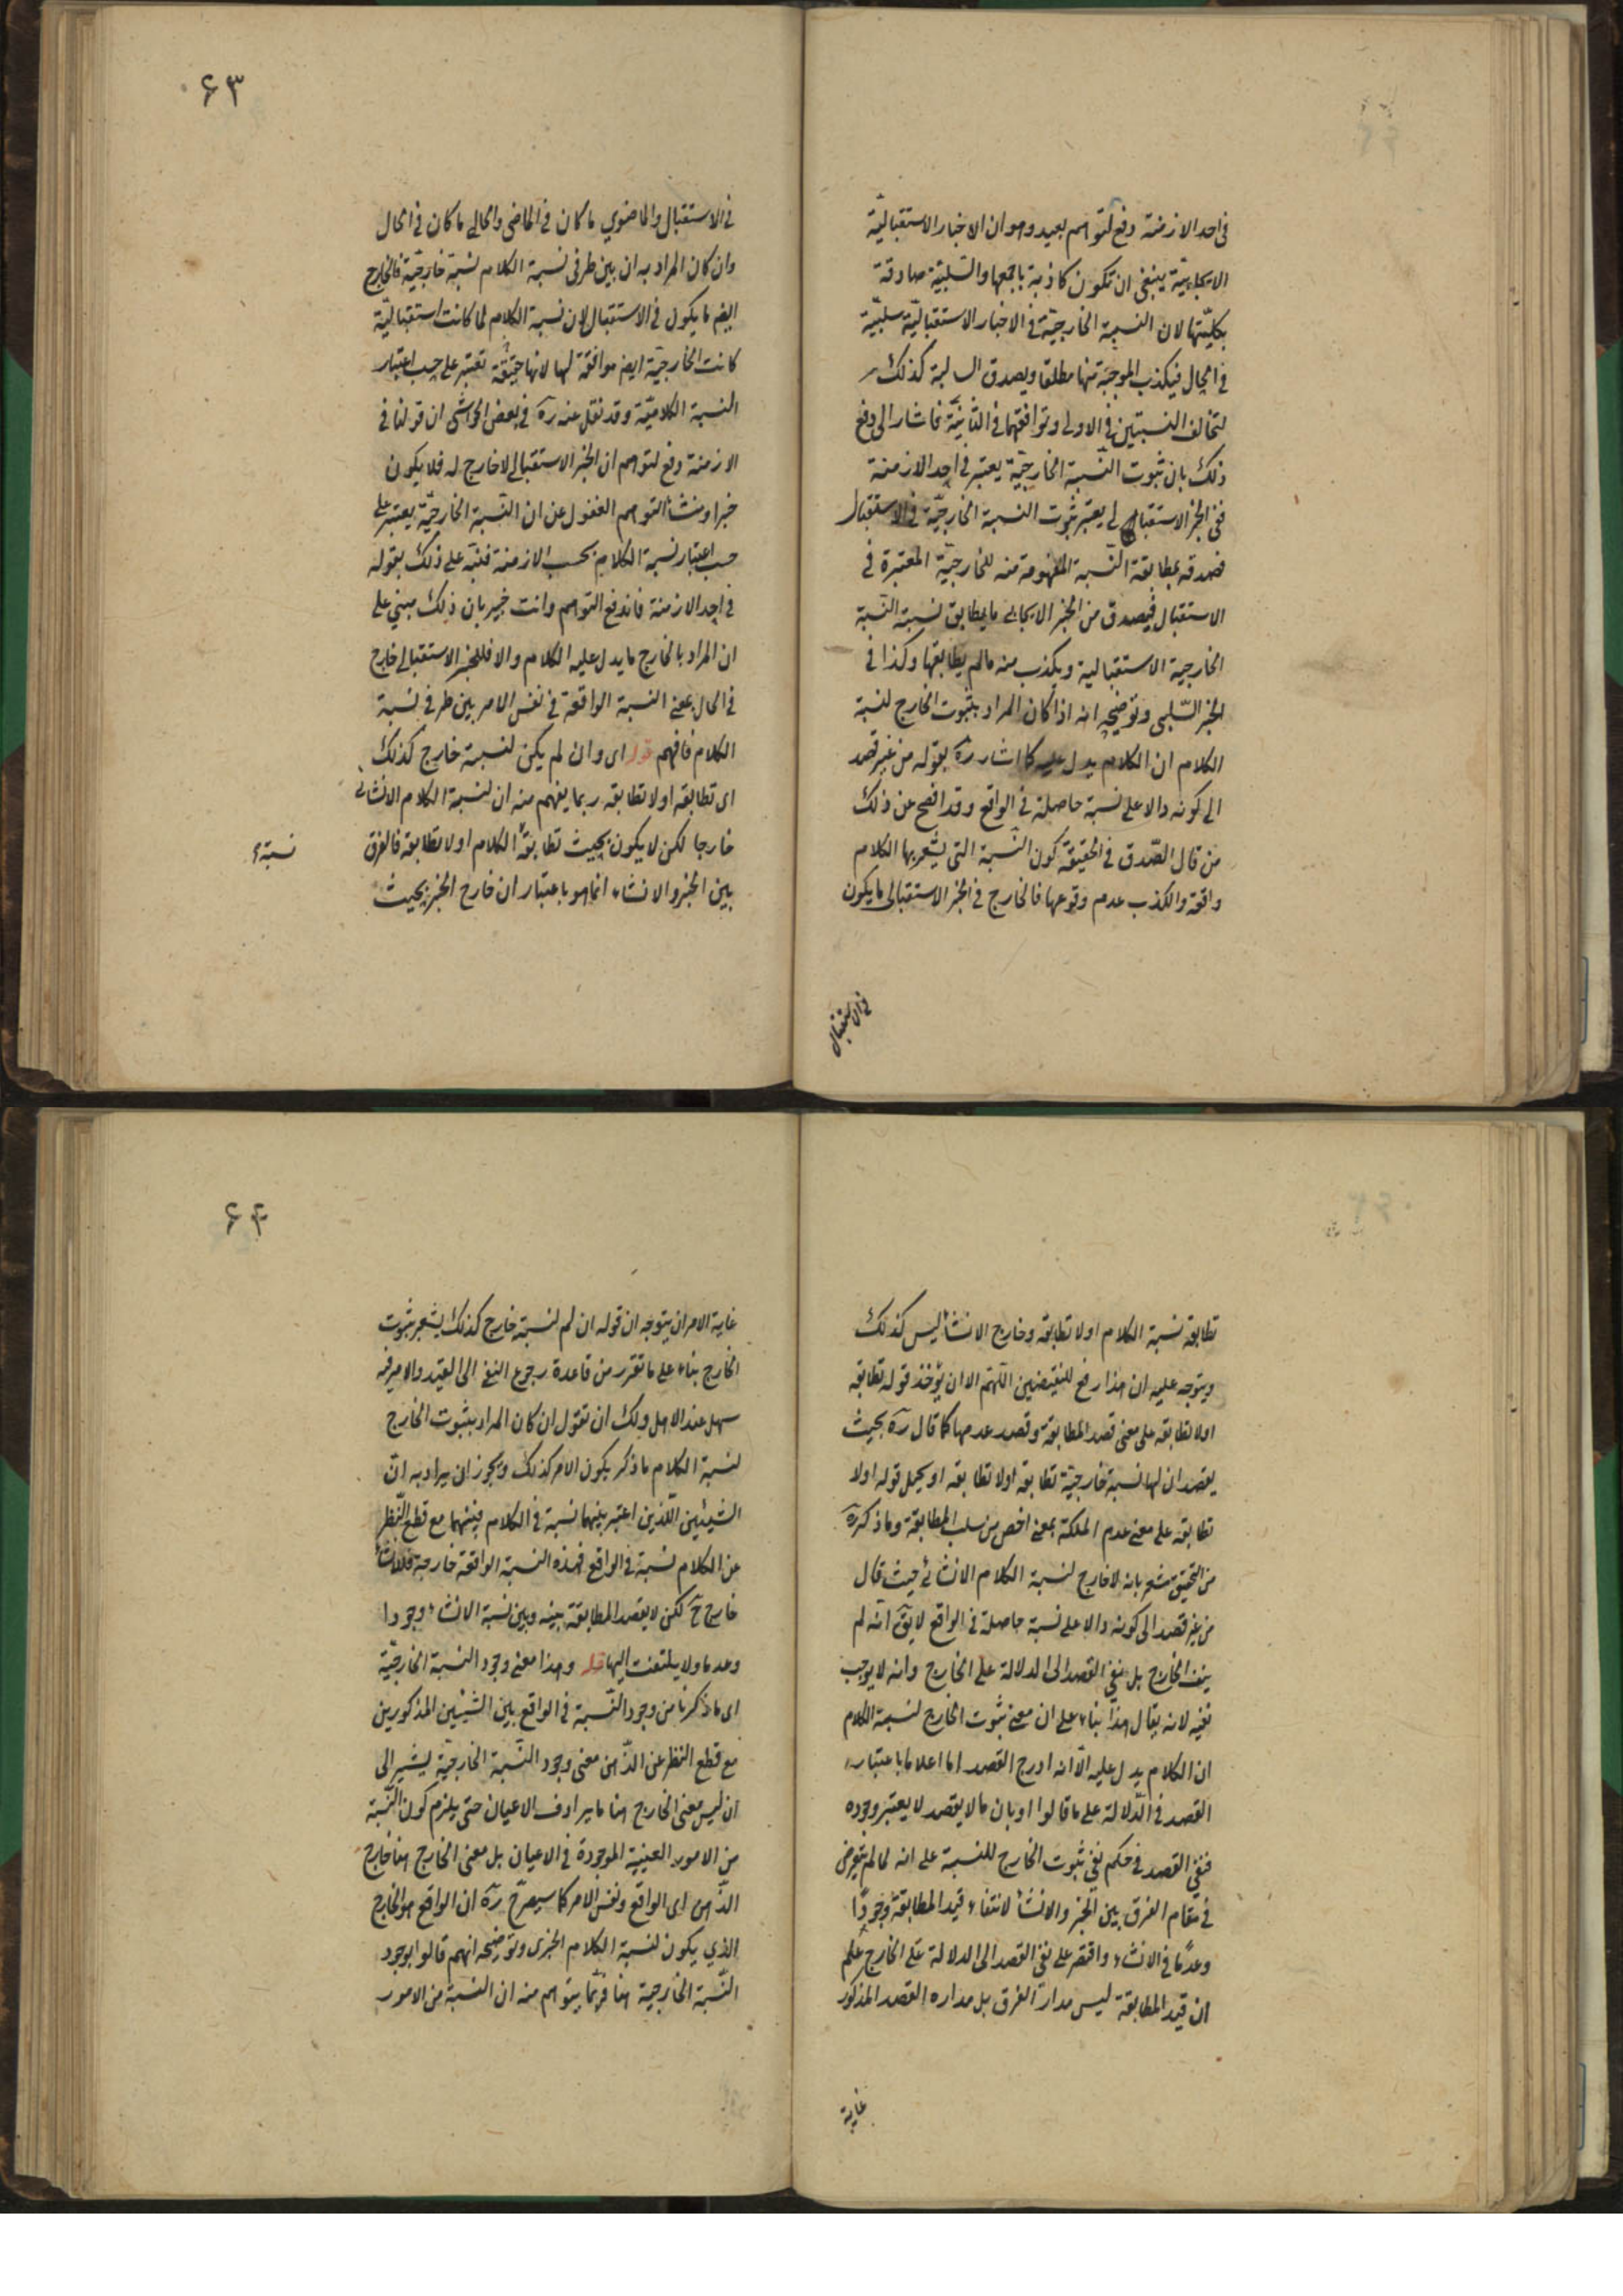 في احد الازمنة دفع لتوهم بعيد وهو ان الاخبار الاستقباليّة
الايجابيّة ينبغي ان تكون كاذبة باجمعها والسّلبيّة صادقة
بكليّتها لان النسبة الخارجيّة في الاخبار الاستقباليّة سلبيّة
في الحال فيكذب الموجبة منها مطلقا ويصدق السالبة كذلك
لتخالف النسبتين في الاولى وتوافقهما في الثانيّة فاشار الى دفع
ذلك بان ثبوت النّسبة الخارجيّة يعتبر في احد الازمنة
ففي الخبر الاستقبالي يعتبر ثبوت النسبة الخارجيّة في الاستقبال
فصدقه بمطابقة النّسبة المفهومة منه للخارجيّة المعتبرة في
الاستقبال فيصدق من الخبر الايجابي ما يطابق نسبته النّسبة
الخارجية الاستقبالية ويكذب منه ما لم يطابقها وكذا في
الخبر السّلبي وتوضيحه انه اذا كان المراد بثبوت الخارج لنسبة
الكلام ان الكلام يدل عليه كما اشار ره بقوله من غير قصد
الى كونه دالا على نسبة حاصلة في الواقع وقد افصح عن ذلك
من قال الصّدق في الحقيقة كون النّسبة التي يشعر بها الكلام
واقعة والكذب عدم وقوعها فالخارج في الخبر الاستقبالي ما يكون
في الاستقبال
۶۳
في الاستقبال والماضوي ما كان في الماضي والحالي ما كان في الحال
وان كان المراد به ان بين طرفي نسبة الكلام نسبة خارجيّة فالخارج
ايضا ما يكون في الاستقبال لان نسبة الكلام لما كانت استقباليّة
كانت الخارجيّة ايضا موافقة لها لانها حقيقة تعتبر على حسب اعتبار
النسبة الكلاميّة وقد نقل عنه ره في بعض الحواشي ان قولنا في
الازمنة دفع لتوهم ان الخبر الاستقبالي لا خارج له فلا يكون
خبرا ومنشأ التوهم الغفول عن ان النّسبة الخارجيّة يعتبر على
حسب اعتبار نسبة الكلام بحسب الازمنة فنبّه على ذلك بقوله
في احد الازمنة فاندفع التوهم وانت خبير بان ذلك مبني على
ان المراد بالخارج ما يدل عليه الكلام والا فللخبر الاستقبالي خارج
في الحال بمعنى النسبة الواقعة في نفس الامر بين طرفي نسبة
الكلام فافهم قوله اي وان لم يكن لنسبته خارج كذلك
اي تطابقه او لا تطابقه ربما يفهم منه ان لنسبة الكلام الانشائي
خارجا لكن لا يكون بحيث تطابقه الكلام او لا تطابقه فالفرق
نسبة
بين الخبر والانشاء انما هو باعتبار ان خارج الخبر بحيث
تطابقه نسبة الكلام او لا تطابقه وخارج الانشأ ليس كذلك
ويتوجه عليه ان هذا رفع للنقيضين اللّهم الا ان يؤخذ قوله تطابقه
او لا تطابقه على معنى قصد المطابقة وقصد عدمها كما قال ره بحيث
يقصد ان لها نسبة خارجيّة تطابقه او لا تطابقه او يحمل قوله او لا
تطابقه على معنى عدم الملكة بمعنى اخص من سلب المطابقة وما ذكره
من التحقيق مشعر بانه لا خارج لنسبة الكلام الانشائي حيث قال
من غير قصد الى كونه دالا على نسبة حاصلة في الواقع لا يقٓ انّه لم
ينف الخارج بل نفي القصد الى الدلالة على الخارج وانه لا يوجب
نفيه لانه يقال هذا بناء على ان معنى ثبوت الخارج لنسبة الكلام
ان الكلام يدل عليه الّا انه ادرج القصد اما اعلاما باعتبار
القصد في الدّلالة على ما قالوا او بان ما لا يقصد لا يعتبر وجوده
فنفي القصد في حكم نفي ثبوت الخارج للنسبة على انه لما لم يتعرض
في مقام الفرق بين الخبر والانشأ لانتفاء قيد المطابقة وجودًا
وعدمًا في الانشاء واقتصر على نفي القصد الى الدلالة على الخارج علم
ان قيد المطابقة ليس مدار الفرق بل مداره القصد المذكور
غاية
۶۴
غاية الامر ان يتوجه ان قوله ان لم لنسبته خارج كذلك يشعر بثبوت
الخارج بناء على ما تقرر من قاعدة رجوع النفي الى القيد والامر فيه
سهل عند الاهل ولك ان تقول ان كان المراد بثبوت الخارج
لنسبة الكلام ما ذكر يكون الامر كذلك ويجوز ان يراد به انّ
الشيئين اللّذين اعتبر بينهما نسبة في الكلام فبينهما مع قطع النّظر
عن الكلام نسبة في الواقع فهذه النسبة الواقعة خارجة فللانشأ
خارج ح لكن لا يقصد المطابقة بينه وبين نسبة الانشاء وجودا
وعدما ولا يلتفت اليها قوله وهذا معنى وجود النسبة الخارجيّة
اي ما ذكرنا من وجود النّسبة في الواقع بين الشيئين المذكورين
مع قطع النظر عن الذّهن معنى وجود النّسبة الخارجيّة يشير الى
ان ليس معنى الخارج هنا ما يرادف الاعيان حتى يلزم كون النّسبة
من الامور العينية الموجودة في الاعيان بل معنى الخارج هنا خارج
الذّهن اي الواقع ونفس الامر كما سيصرّح ره ان الواقع هو الخارج
الذي يكون لنسبة الكلام الخبري وتوضيحه انهم قالوا بوجود
النّسبة الخارجية هنا فربّما يتوهم منه ان النسبة من الامور